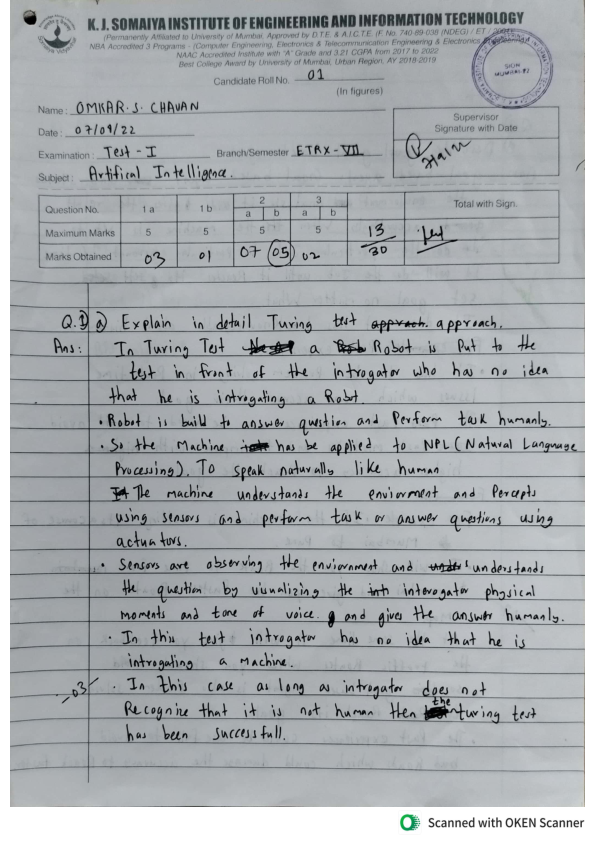 K. J. SOMAIYA INSTITUTE OF ENGINEERING AND INFORMATION TECHNOLOGY
(Permanently Affiliated to University of Mumbai, Approved by D.T.E. & A.I.C.T.E. (F. No. 740-89-038 (NDEG) / ET /
NBA Accredited 3 Programs - (Computer Engineering, Electronics & Telecommunication Engineering & Electronics
NAAC Accredited Institute with "A" Grade and 3.21 CGPA from 2017 to 2022
Best College Award by University of Mumbai, Urban Region, AY 2018-2019
SION
MUMBAI-22
Candidate Roll No. 01
(In figures)
Name: OMKAR. S. CHAVAN
Date: 07/09/22
Supervisor
Signature with Date
Examination: Test - I Branch/Semester ETRX - VII
Subject: Artifical Intelligence.
Question No. 1 a 1 b 2 a b 3 a b Total with Sign.
Maximum Marks 5 5 5 5 13/30
Marks Obtained 03 01 07 05 02
Q.1) a) Explain in detail Turing test apprach. approach.
Ans: In Turing Test a Robot is Put to the
test in front of the introgator who has no idea
that he is introgating a Robot.
• Robot is build to answer question and Perform task humanly.
• So the Machine has be applied to NPL (Natural Language
Processing). To speak naturally like human
The machine understands the enviorment and Percepts
using sensors and perform task or answer questions using
actuators.
• Sensors are observing the enviornment and understands
the question by viualizing the interogator physical
moments and tone of voice. and gives the answer humanly.
• In this test introgator has no idea that he is
introgating a Machine.
-03- • In this case as long as introgator does not
Recognize that it is not human then the turing test
has been successfull.
Scanned with OKEN Scanner